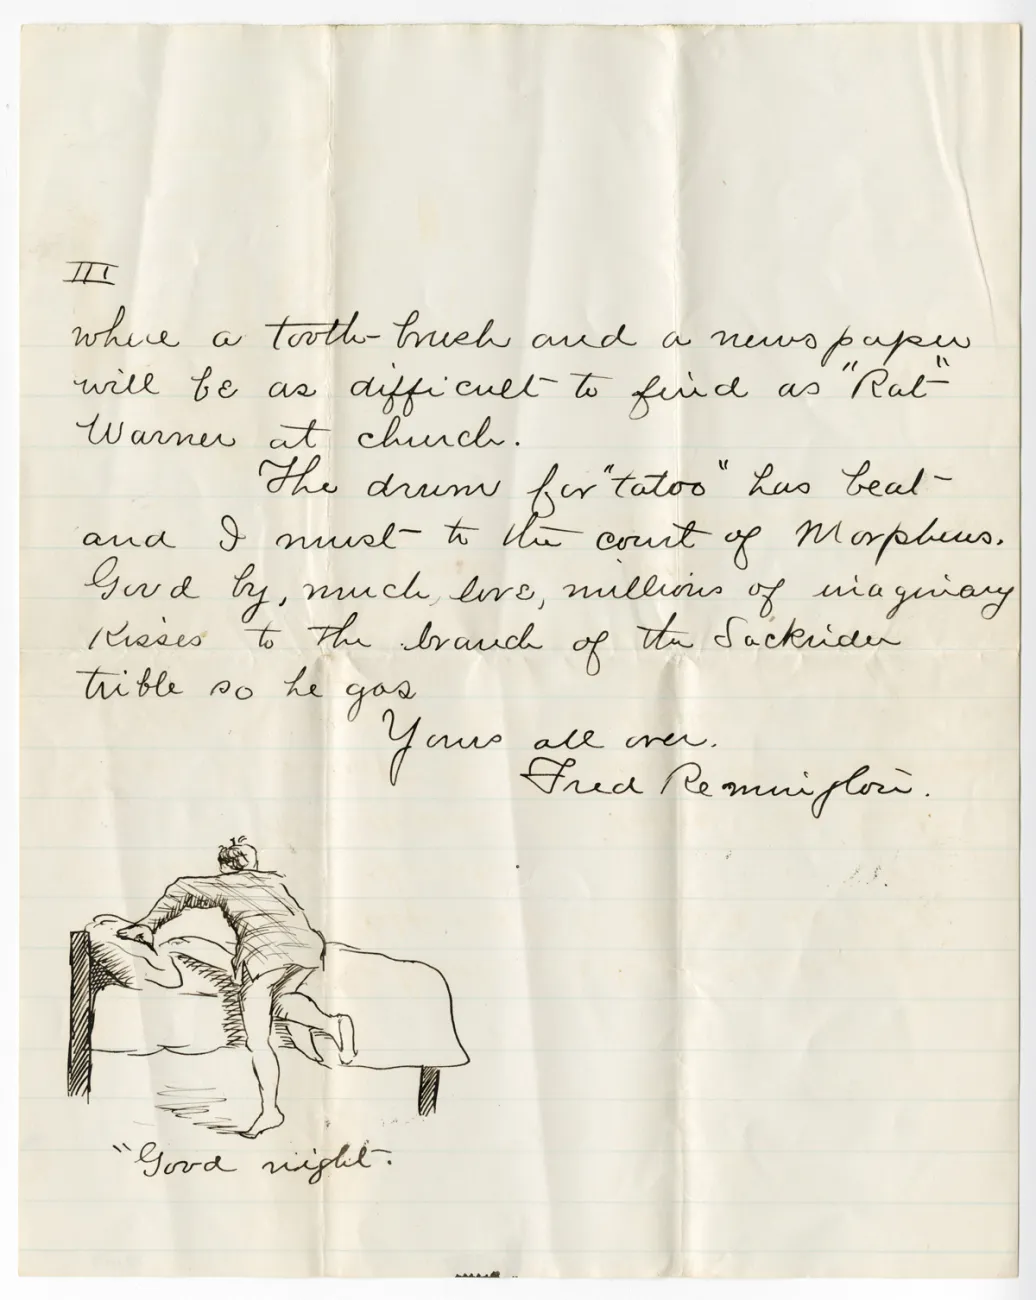 III
where a tooth-brush and a newspaper
will be as difficult to find as "Rat"
Warner at church.
The drum for "tatoo" has beat
and I must to the court of Morpheus.
Good by, much, love, millions of imaginary
Kisses to the branch of the Sackrider
trible so he gas
Yours all over.
Fred Remington.
"Good night.